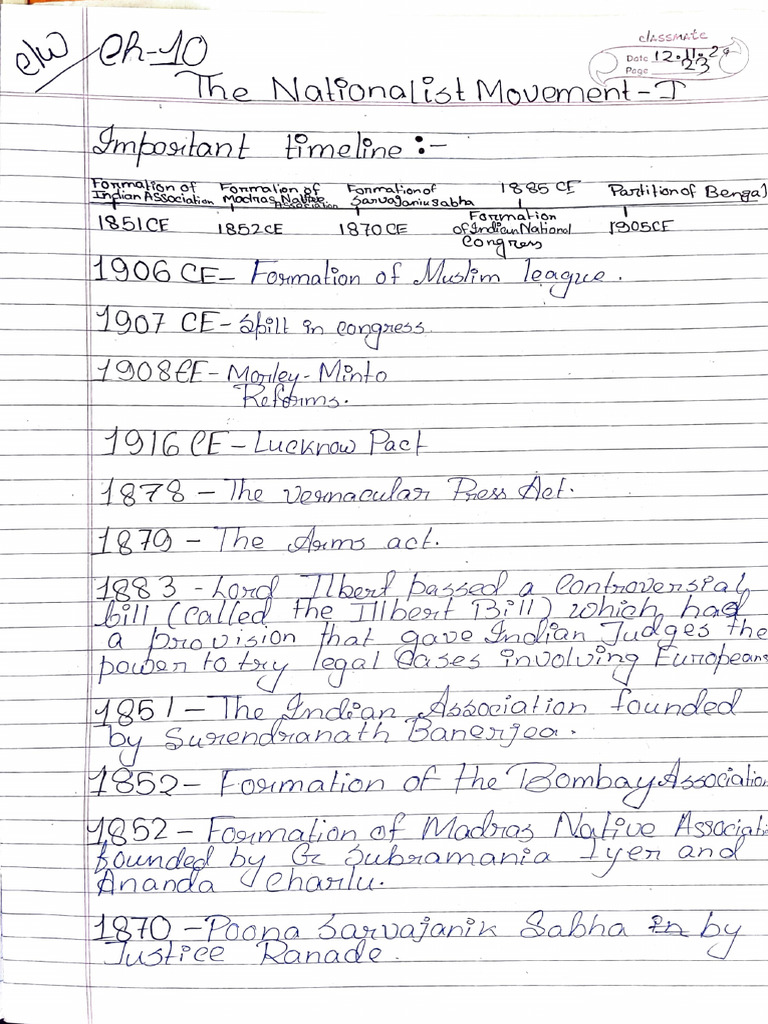 c/w Ch-10
classmate
Date 12.11.23
Page
The Nationalist Movement-I
Important timeline :-
Formation of Indian Association
1851 CE
Formation of Madras Native Association
1852 CE
Formation of Sarvajanik Sabha
1870 CE
1885 CE
Formation of Indian National Congress
Partition of Bengal
1905 CE
1906 CE- Formation of Muslim league.
1907 CE- Spilt in congress.
1908 CE- Morley-Minto
Reforms.
1916 CE- Lucknow Pact
1878 - The vernacular Press Act.
1879 - The Arms act.
1883 - Lord Ilbert passed a controversial
bill (called the Illbert Bill) which had
a provision that gave Indian Judges the
power to try legal cases involving Europeans
1851 - The Indian Association founded
by Surendranath Banerjea.
1852- Formation of the Bombay Association
1852 - Formation of Madras Native Associati
founded by G Subramania Iyer and
Ananda Charlu.
1870 - Poona Sarvajanik Sabha by
Justice Ranade.